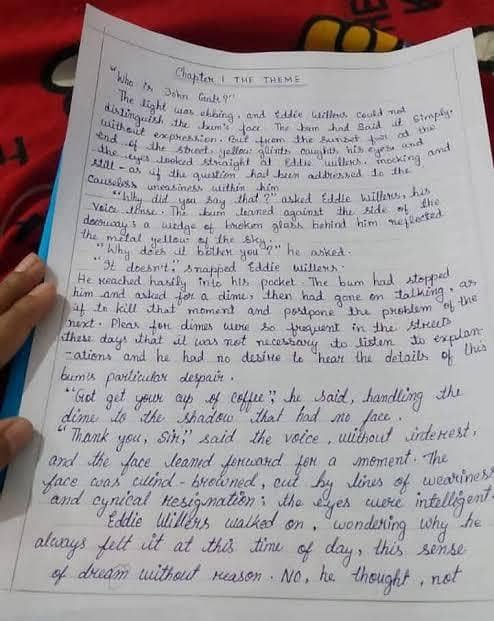 Chapter 1 THE THEME
"Who is John Galt?"
The light was ebbing, and Eddie Willers could not
distinguish the bum's face. The bum had said it simply,
without expression. But from the sunset far at the
end of the street, yellow glints caught his eyes, and
the eyes looked straight at Eddie Willers, mocking and
still - as if the question had been addressed to the
causeless uneasiness within him
"Why did you say that?" asked Eddie Willers, his
voice tense. The bum leaned against the side of the
doorway; a wedge of broken glass behind him reflected
the metal yellow of the sky.
"Why does it bother you?" he asked.
"It doesn't; snapped Eddie Willers.
He reached hastily into his pocket. The bum had stopped
him and asked for a dime, then had gone on talking, as
if to kill that moment and postpone the problem of the
next. Pleas for dimes were so frequent in the streets
these days that it was not necessary to listen to explan-
-ations and he had no desire to hear the details of this
bum's particular despair.
"Got get your cup of coffee"; he said, handling the
dime to the shadow that had no face.
"Thank you, Sir;" said the voice, without interest,
and the face leaned forward for a moment. The
face was wind-browned, cut by lines of weariness
and cynical resignation; the eyes were intelligent.
Eddie Willers walked on, wondering why he
always felt it at this time of day, this sense
of dream without reason. NO, he thought, not